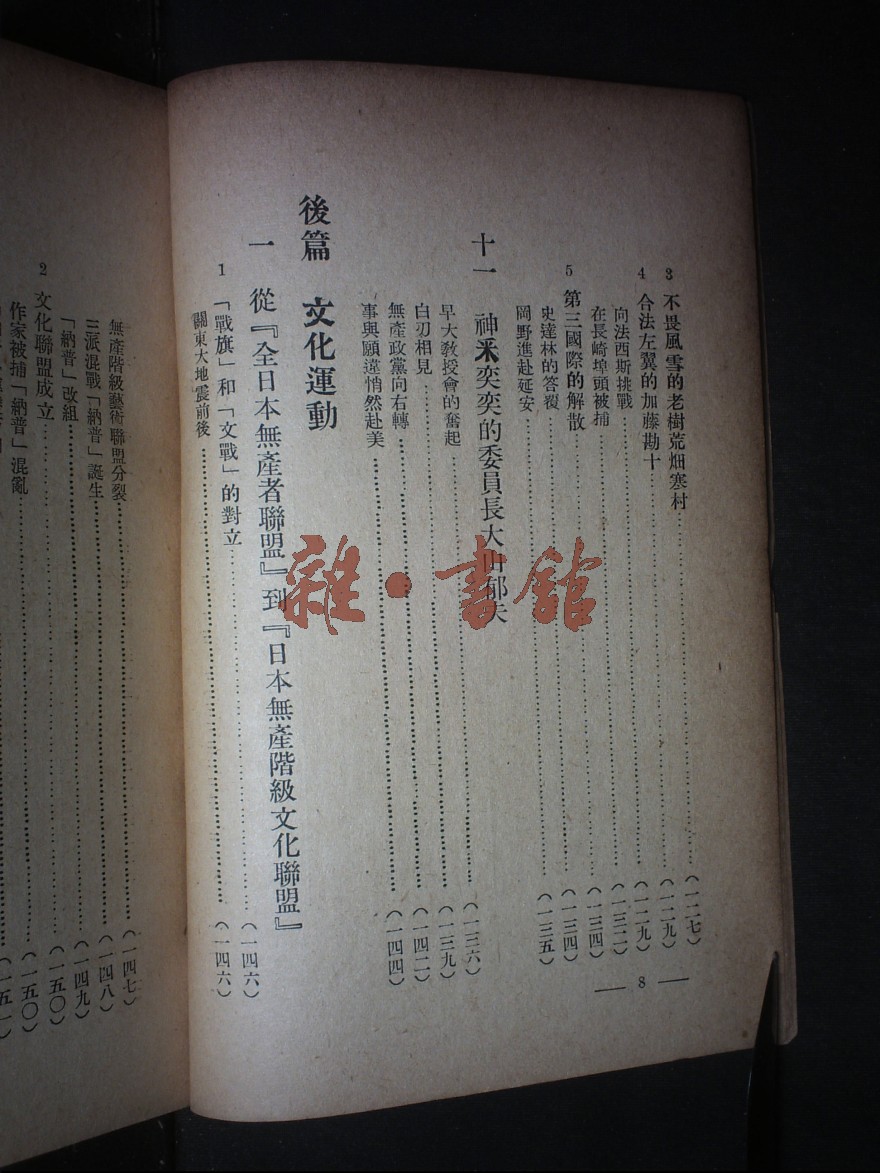 3 不畏風雪的老樹荒畑寒村………(一二七)
4 合法左翼的加藤勘十………(一二九)
向法西斯挑戰………(一二九)
在長崎埠頭被捕………(一三二)
5 第三國際的解散………(一三四)
史達林的答覆………(一三四)
岡野進赴延安………(一三五)
十一 神釆奕奕的委員長大山郁夫
早大教授會的奮起………(一三六)
白刃相見………(一三九)
無產政黨向右轉………(一四二)
事與願違悄然赴美………(一四四)
後篇 文化運動
一 從『全日本無產者聯盟』到『日本無產階級文化聯盟』
1 「戰旗」和「文戰」的對立………(一四六)
關東大地震前後………(一四六)
— 8 —
無產階級藝術聯盟分裂………(一四七)
三派混戰「納普」誕生………(一四八)
「納普」改組………(一四九)
2 文化聯盟成立………(一五〇)
作家被捕「納普」混亂………(一五〇)
雜·書館